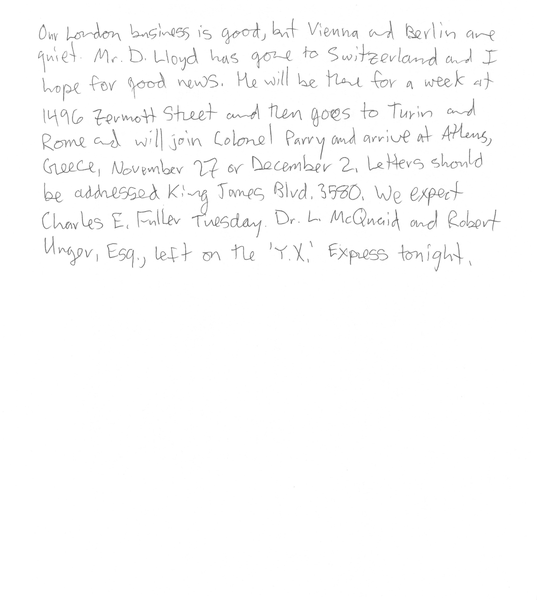 Our London business is good, but Vienna and Berlin are
quiet. Mr. D. Lloyd has gone to Switzerland and I
hope for good news. He will be there for a week at
1496 Zermott Street and then goes to Turin and
Rome and will join Colonel Parry and arrive at Athens,
Greece, November 27 or December 2. Letters should
be addressed King James Blvd. 3580. We expect
Charles E. Fuller Tuesday. Dr. L. McQuaid and Robert
Unger, Esq., left on the 'Y.X.' Express tonight.